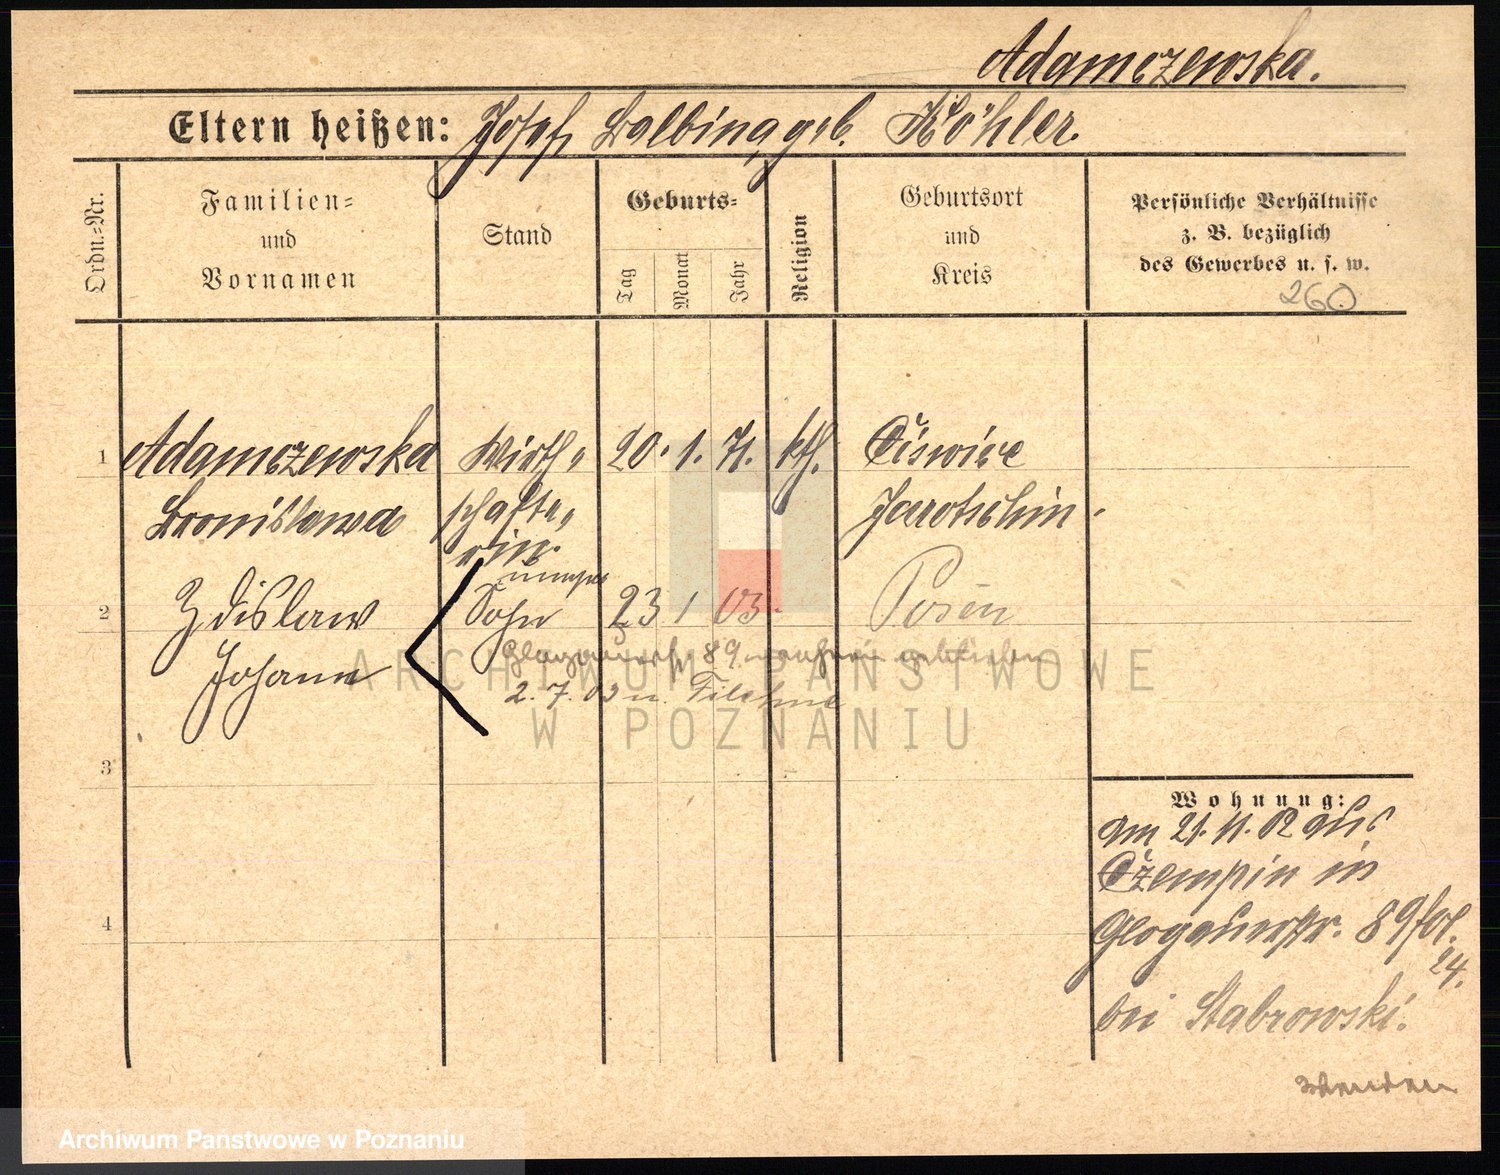 Adamczewska.
Eltern heißen: Josef, Balbina, geb. Köhler.
Ordn.=Nr.
Familien=
und
Vornamen
Stand
Geburts=
Tag
Monat
Jahr
Religion
Geburtsort
und
Kreis
Persönliche Verhältnisse
z. B. bezüglich
des Gewerbes u. s. w.
260
1 Adamczewska Wirth= 20. 1. 71. kth.
Jarotschin.
Bronislawa schafte=
rin.
2 Zdislaw Sohn 23 1 03 Posen
Johann
Glogauerstr 89
2. 7. 03 n. Filehne
3
4
Wohnung:
am 21. 11. 02 aus
Czempin in
Glogauerstr. 89
24.
bei Stabrowski.
wenden
ARCHIWUM PAŃSTWOWE
W POZNANIU
Archiwum Państwowe w Poznaniu